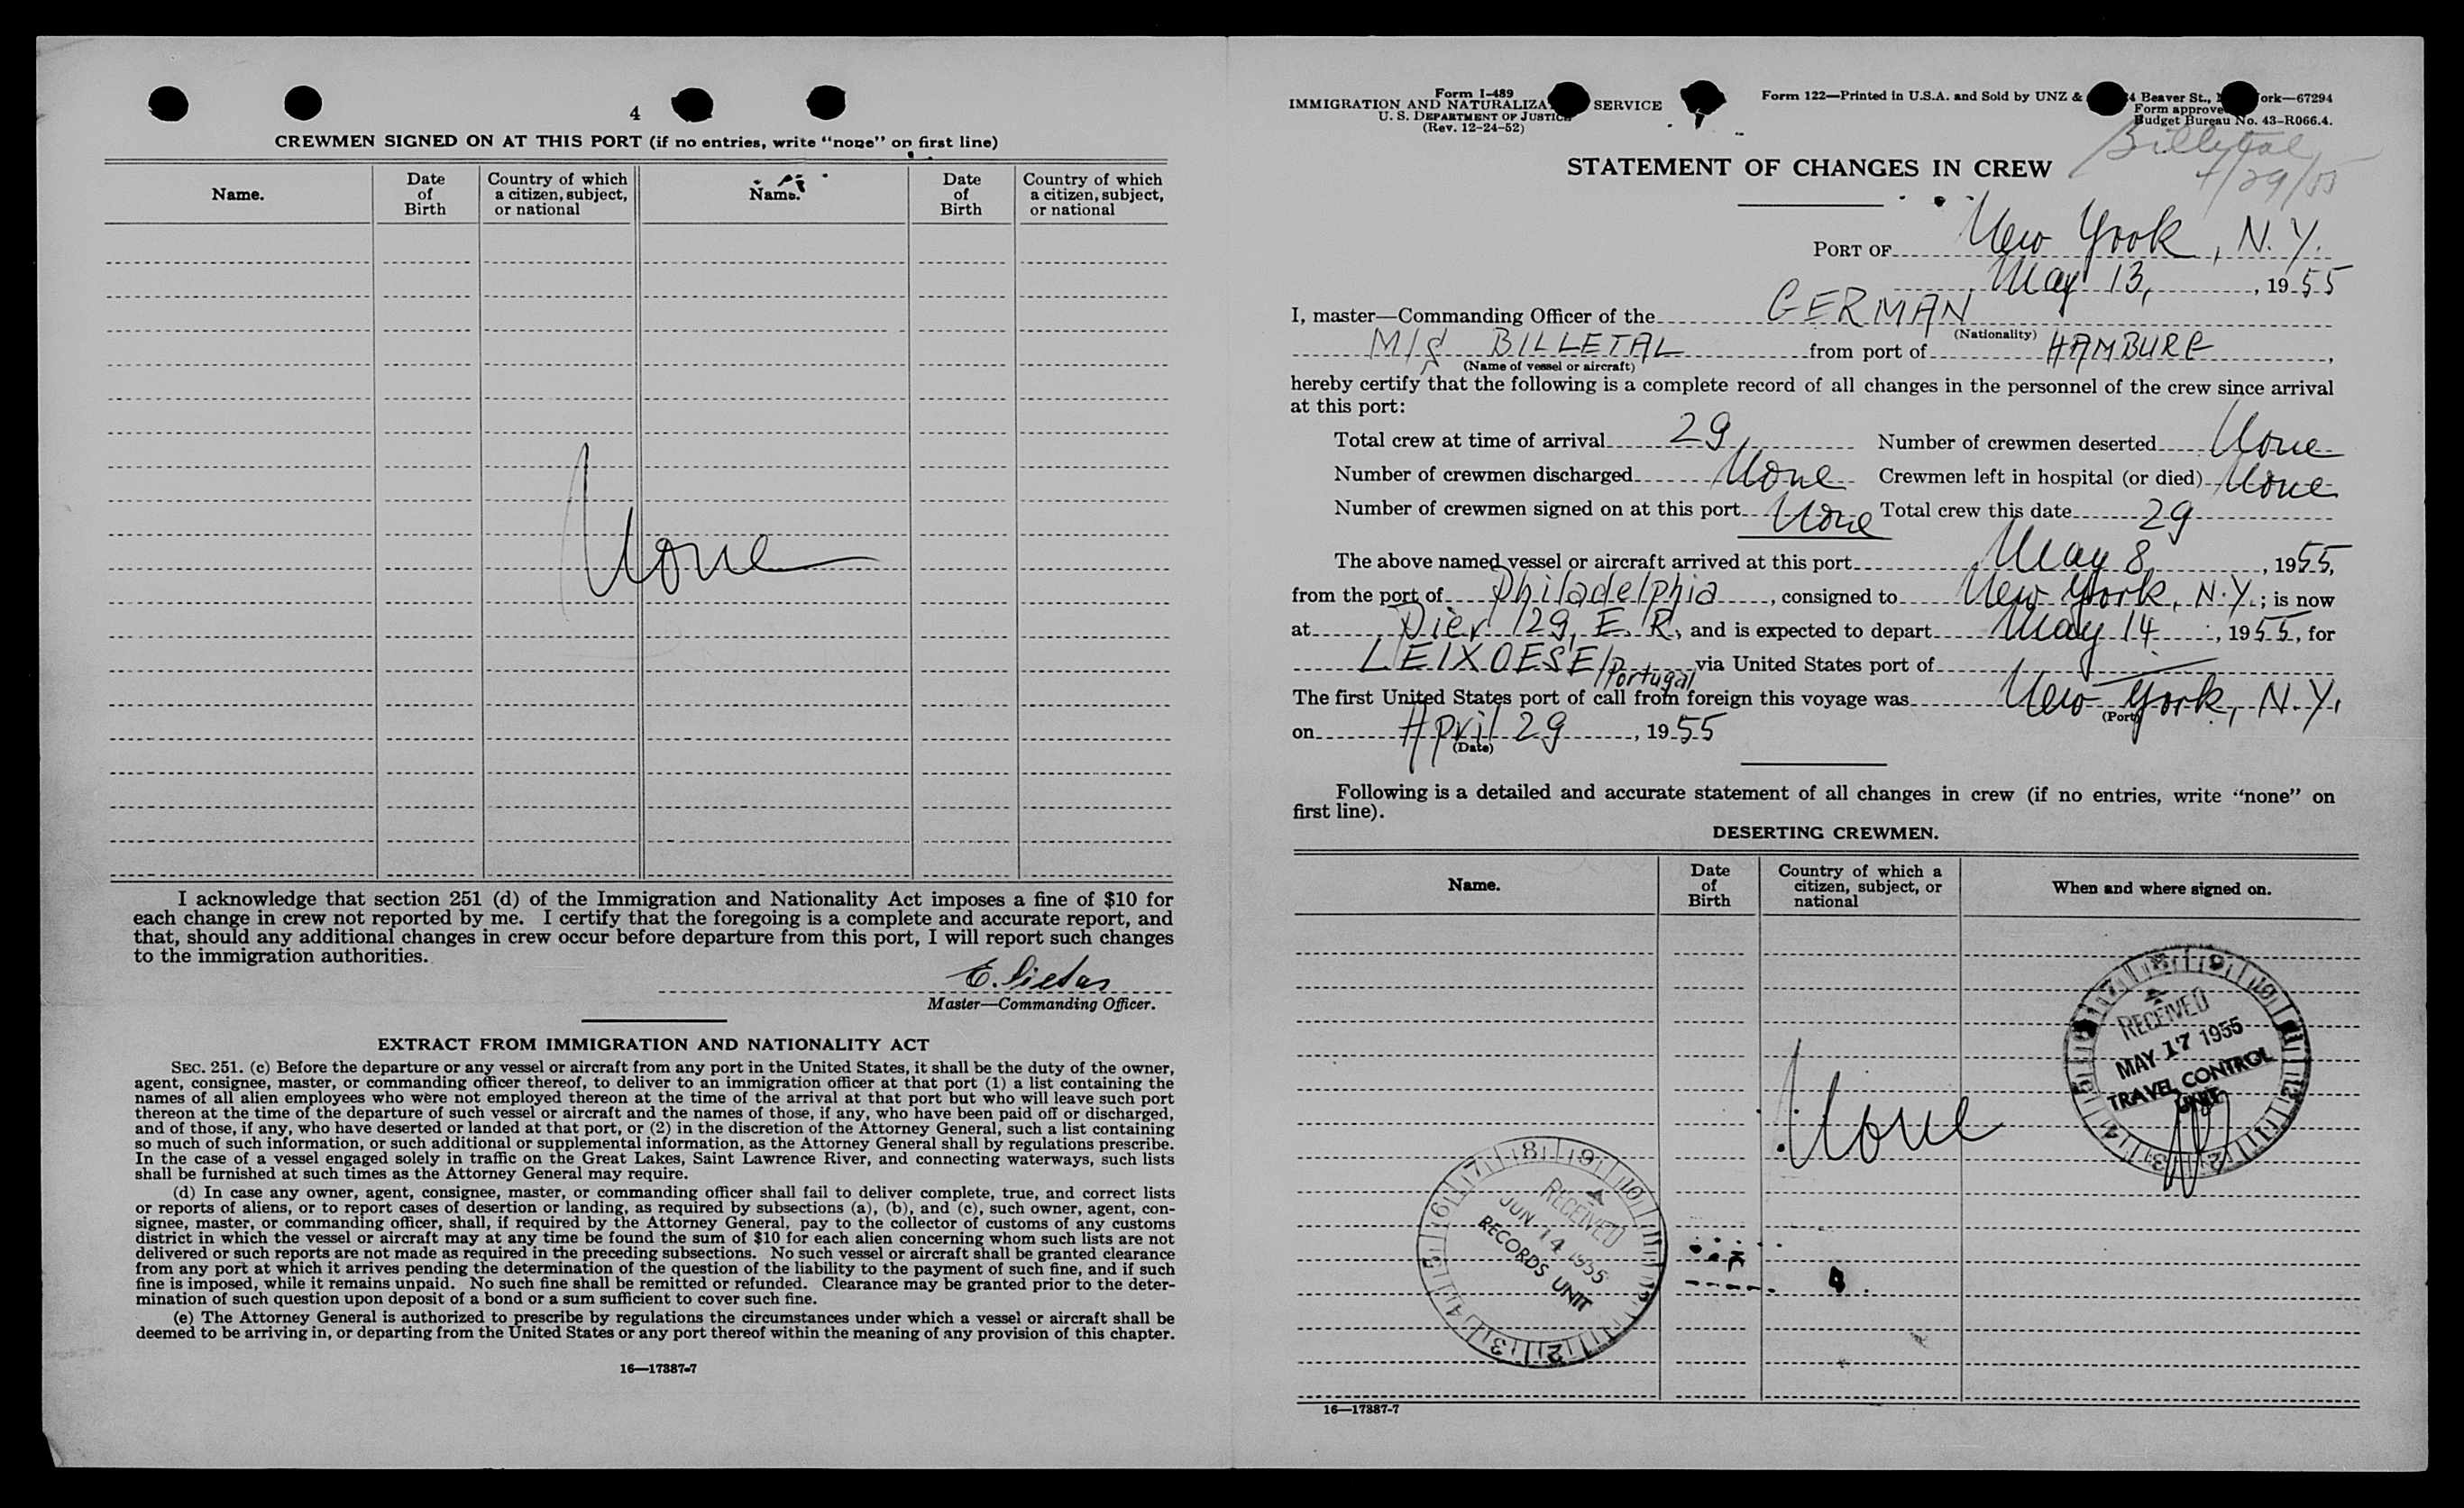 4
CREWMEN SIGNED ON AT THIS PORT (if no entries, write “none” on first line)
Name.
Date
of
Birth
Country of which
a citizen, subject,
or national
Name.
Date
of
Birth
Country of which
a citizen, subject,
or national
None
I acknowledge that section 251 (d) of the Immigration and Nationality Act imposes a fine of $10 for
each change in crew not reported by me. I certify that the foregoing is a complete and accurate report, and
that, should any additional changes in crew occur before departure from this port, I will report such changes
to the immigration authorities.
E. Sietas
Master—Commanding Officer.
EXTRACT FROM IMMIGRATION AND NATIONALITY ACT
SEC. 251. (c) Before the departure or any vessel or aircraft from any port in the United States, it shall be the duty of the owner,
agent, consignee, master, or commanding officer thereof, to deliver to an immigration officer at that port (1) a list containing the
names of all alien employees who were not employed thereon at the time of the arrival at that port but who will leave such port
thereon at the time of the departure of such vessel or aircraft and the names of those, if any, who have been paid off or discharged,
and of those, if any, who have deserted or landed at that port, or (2) in the discretion of the Attorney General, such a list containing
so much of such information, or such additional or supplemental information, as the Attorney General shall by regulations prescribe.
In the case of a vessel engaged solely in traffic on the Great Lakes, Saint Lawrence River, and connecting waterways, such lists
shall be furnished at such times as the Attorney General may require.
(d) In case any owner, agent, consignee, master, or commanding officer shall fail to deliver complete, true, and correct lists
or reports of aliens, or to report cases of desertion or landing, as required by subsections (a), (b), and (c), such owner, agent, con-
signee, master, or commanding officer, shall, if required by the Attorney General, pay to the collector of customs of any customs
district in which the vessel or aircraft may at any time be found the sum of $10 for each alien concerning whom such lists are not
delivered or such reports are not made as required in the preceding subsections. No such vessel or aircraft shall be granted clearance
from any port at which it arrives pending the determination of the question of the liability to the payment of such fine, and if such
fine is imposed, while it remains unpaid. No such fine shall be remitted or refunded. Clearance may be granted prior to the deter-
mination of such question upon deposit of a bond or a sum sufficient to cover such fine.
(e) The Attorney General is authorized to prescribe by regulations the circumstances under which a vessel or aircraft shall be
deemed to be arriving in, or departing from the United States or any port thereof within the meaning of any provision of this chapter.
16—17387-7
Form I-489
IMMIGRATION AND NATURALIZA SERVICE
U. S. DEPARTMENT OF JUSTICE
(Rev. 12-24-52)
Form 122—Printed in U.S.A. and Sold by UNZ & 4 Beaver St., ork—67294
Form approve
Budget Bureau No. 43-R066.4.
Billetal
4/29/55
STATEMENT OF CHANGES IN CREW
PORT OF New York, N.Y.
May 13, , 1955
I, master—Commanding Officer of the GERMAN
(Nationality)
M/S BILLETAL from port of HAMBURG,
(Name of vessel or aircraft)
hereby certify that the following is a complete record of all changes in the personnel of the crew since arrival
at this port:
Total crew at time of arrival 29 Number of crewmen deserted None
Number of crewmen discharged None Crewmen left in hospital (or died) None
Number of crewmen signed on at this port None Total crew this date 29
The above named vessel or aircraft arrived at this port May 8, 1955,
from the port of Philadelphia, consigned to New York, N.Y.; is now
at Pier 129, E. R., and is expected to depart May 14, 1955, for
LEIXOESE/Portugal via United States port of —
The first United States port of call from foreign this voyage was New York, N.Y.
(Port)
on April 29, 1955
(Date)
Following is a detailed and accurate statement of all changes in crew (if no entries, write “none” on
first line).
DESERTING CREWMEN.
Name.
Date
of
Birth
Country of which a
citizen, subject, or
national
When and where signed on.
None
7 8 9 10 11 12 1 2 3 4 5 6
RECEIVED
MAY 17 1955
TRAVEL CONTROL
UNIT
7 8 9 10 11 12 1 2 3 4 5 6
RECEIVED
JUN 14 1955
RECORDS UNIT
16—17387-7